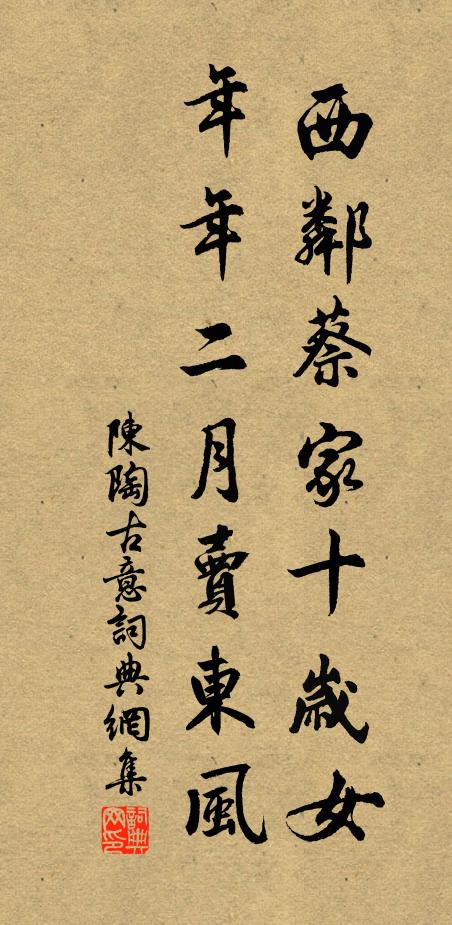 西鄰蔡家十歲女
年年二月賣東風
陳陶古意詞典網集
詞典網印